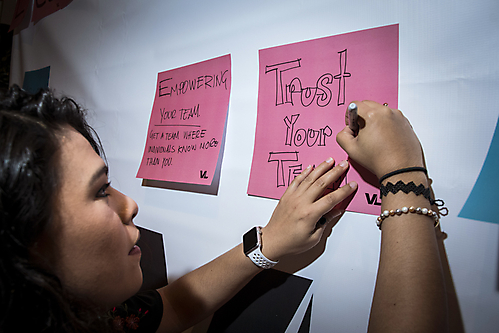 EMPOWERING
YOUR TEAM.
GET A TEAM WHERE
INDIVIDUALS KNOW MORE
THAN YOU.
VL
Trust
Your
TE
VL